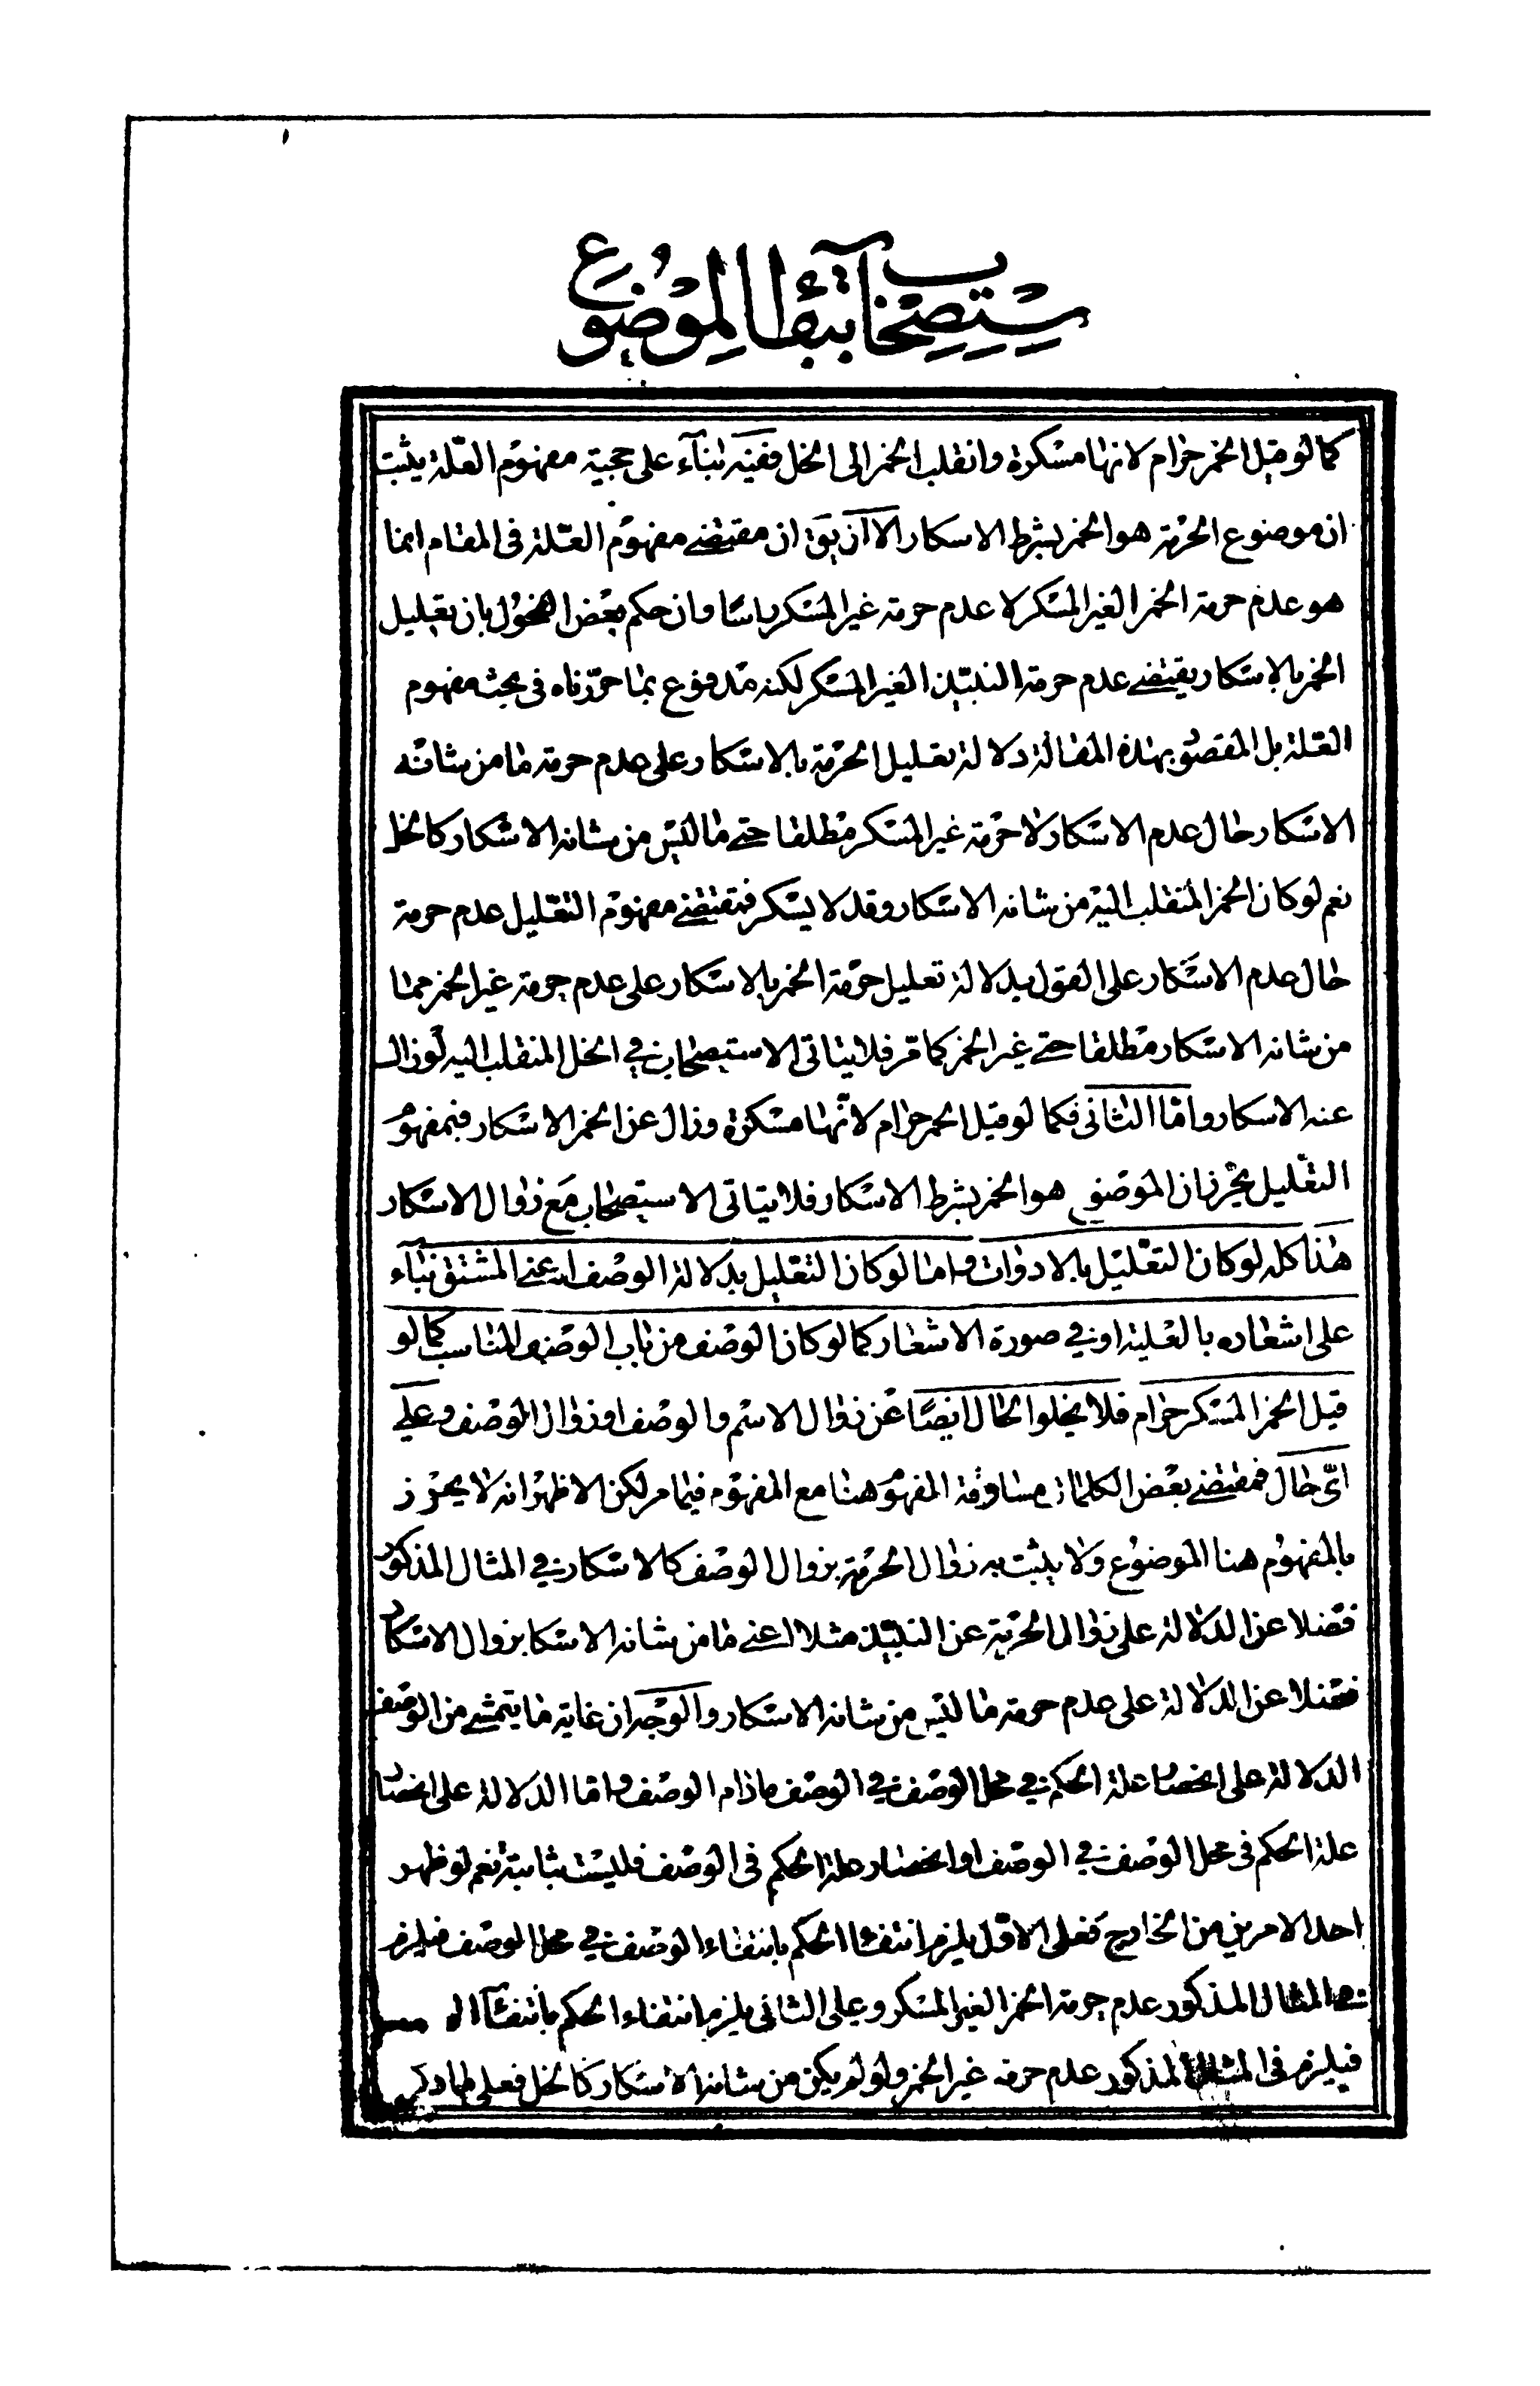 ستصحاب بقاء الموضوع
كما لو قيل الخمر حرام لانها مسكرة وانقلب الخمر الى الخل ففيه بناء على حجية مفهوم العلة يثبت
ان موضوع الحرمة هو الخمر بشرط الاسكار الا ان يق ان مقتضى مفهوم العلة فى المقام انما
هو عدم حرمة الخمر الغير المسكر لا عدم حرمة غير المسكر راسا وان حكم بعض الفحول بان تعليل
الخمر بالاسكار يقتضى عدم حرمة النبيذ الغير المسكر لكنه مدفوع بما حررناه فى بحث مفهوم
العلة بل المقصو بهذه المقالة دلالة تعليل الحرمة بالاسكار على عدم حرمة ما من شانه
الاسكار حال عدم الاسكار لا حرمة غير المسكر مطلقا حتى ما ليس من شانه الاسكار كالخل
نعم لو كان الخمر المنقلب اليه من شانه الاسكار وقد لا يسكر فيقتضى مفهوم التعليل عدم حرمة
حال عدم الاسكار على القول بدلالة تعليل حرمة الخمر بالاسكار على عدم حرمة غير الخمر مما
من شانه الاسكار مطلقا حتى غير الخمر كما مر فلا يتاتى الاستصحاب فى الخل المنقلب اليه لو زال
عنه الاسكار واما الثانى فكما لو قيل الخمر حرام لانها مسكرة وزال عن الخمر الاسكار فبمفهو
التعليل يحرز ان الموضو هو الخمر بشرط الاسكار فلا يتاتى الاستصحاب مع زوال الاسكار
هذا كله لو كان التعليل بالادوات واما لو كان التعليل بدلالة الوصف اعنى المشتق بناء
على اشعاره بالعلية او فى صورة الاشعار كما لو كان الوصف من باب الوصف المناسب كما لو
قيل الخمر المسكر حرام فلا يخلوا الحال ايضا عن زوال الاسم والوصف او زوال الوصف وعلى
اى حال فمقتضى بعض الكلمات مساوقة المفهو هنا مع المفهوم فيما مر لكن الاظهر انه لا يحرز
بالمفهوم هنا الموضوع ولا يثبت به زوال الحرمة بزوال الوصف كالاسكار فى المثال المذكور
فضلا عن الدلالة على زوال الحرمة عن النبيذ مثلا اعنى ما من شانه الاسكا بزوال الاسكار
فضلا عن الدلالة على عدم حرمة ما ليس من شانه الاسكار والوجه ان غاية ما يتمشى من الوصف
الدلالة على انحصار علة الحكم فى محل الوصف فى الوصف مادام الوصف واما الدلالة على انحصار
علة الحكم فى محل الوصف فى الوصف او انحصار علة الحكم فى الوصف فليست بثابتة نعم لو ظهر
احد الامرين من الخارج فعلى الاول يلزم انتفاء الحكم بانتفاء الوصف فى محل الوصف فيلزم
المثال المذكور عدم حرمة الخمر الغير المسكر وعلى الثانى يلزم انتفاء الحكم بانتفاء
فيلزم فى المثال المذكور عدم حرمة غير الخمر ولو لم يكن من شانه الاسكار كالخل فعلى ما ذكر